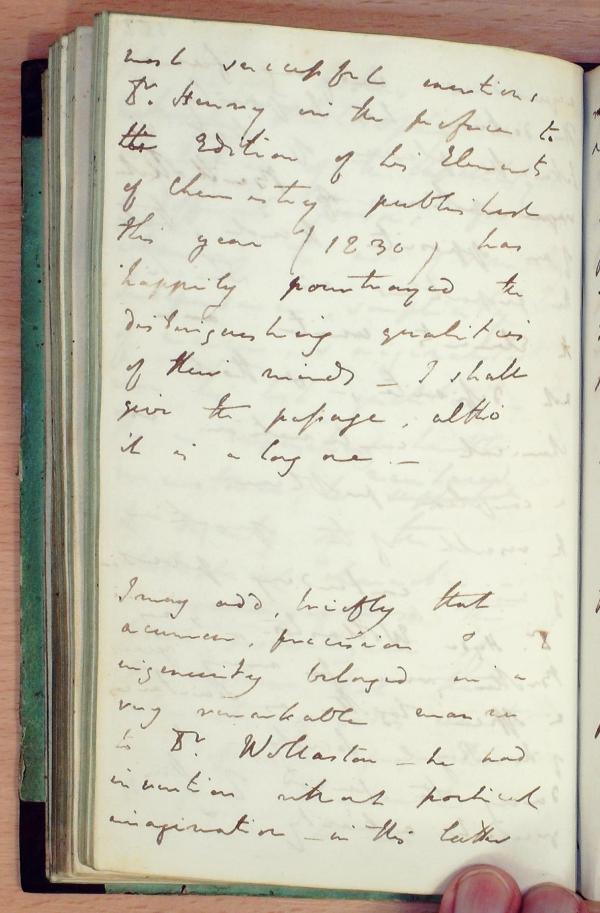 most successful exertions
Dr. Henry in the preface to
the Edition of his Elements
of Chemistry published
this year (1830) has
happily pourtrayed the
distinguishing qualities
of their minds _ I shall
give the passage, altho
it is a long one. _
I may add, briefly that
acumen, precision &
ingenuity belonged in a
very remarkable manner
to Dr. Wollaston _ he had
invention without poetical
imagination _ in this latter